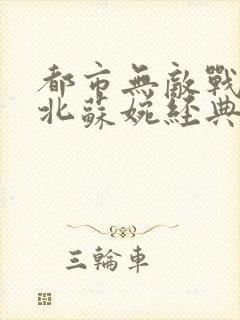 都市無敵戰
北蘇婉經典
三輪車